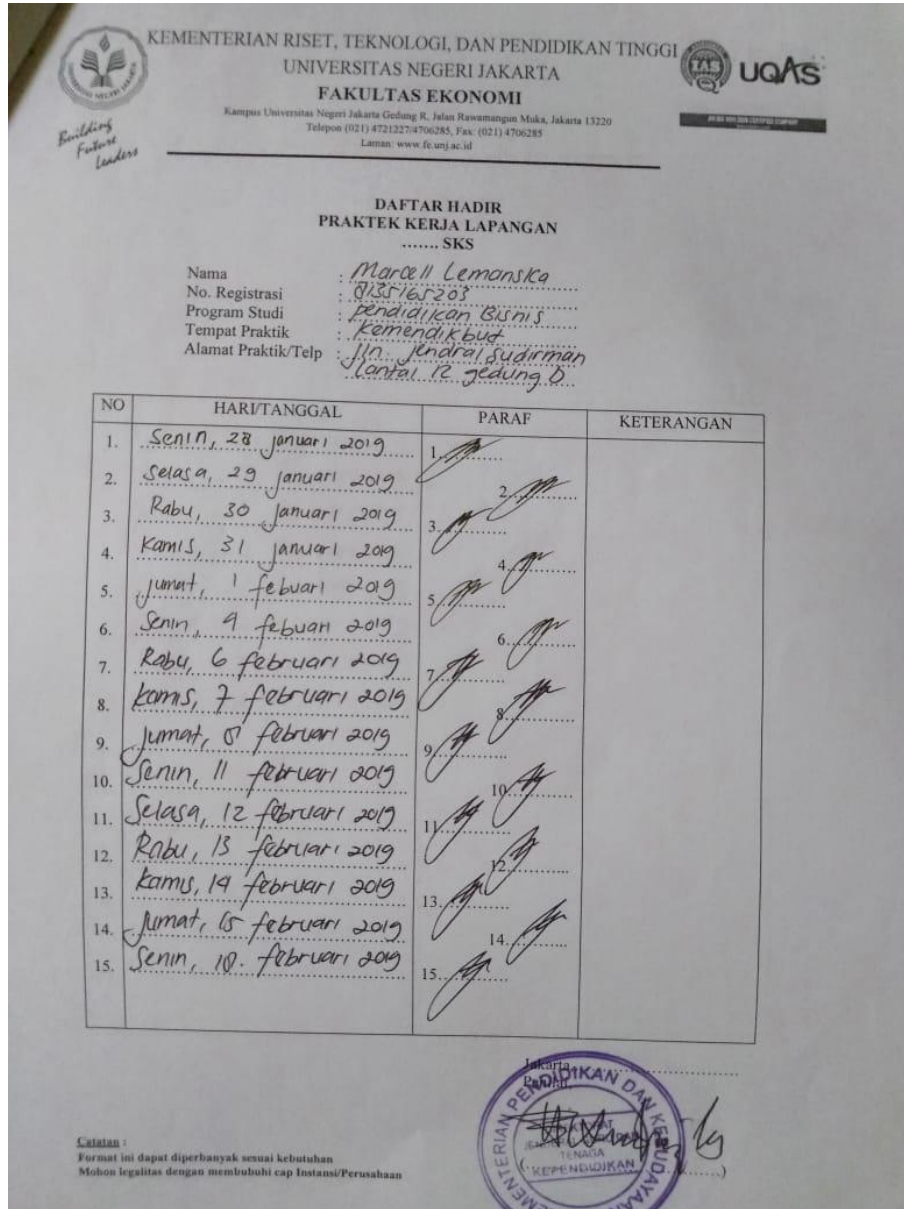 KEMENTERIAN RISET, TEKNOLOGI, DAN PENDIDIKAN TINGGI
UNIVERSITAS NEGERI JAKARTA
FAKULTAS EKONOMI
Kampus Universitas Negeri Jakarta Gedung R, Jalan Rawamangun Muka, Jakarta 13220
Telepon (021) 4721227/4706285, Fax: (021) 4706285
Laman: www.fe.unj.ac.id
Building
Future
Leaders
UQAS
DAFTAR HADIR
PRAKTEK KERJA LAPANGAN
....... SKS
Nama : Marcell Lemanska
No. Registrasi : 8135165203
Program Studi : pendidikan Bisnis
Tempat Praktik : Kemendikbud
Alamat Praktik/Telp : Jln. jendral sudirman
lantai 12 gedung D
NO HARI/TANGGAL PARAF KETERANGAN
1. Senin, 28 januari 2019 1.
2. Selasa, 29 januari 2019 2.
3. Rabu, 30 januari 2019 3.
4. Kamis, 31 januari 2019 4.
5. jumat, 1 febuari 2019 5.
6. Senin, 4 febuari 2019 6.
7. Rabu, 6 februari 2019 7.
8. kamis, 7 februari 2019 8.
9. jumat, 8 februari 2019 9.
10. Senin, 11 februari 2019 10.
11. Selasa, 12 februari 2019 11.
12. Rabu, 13 februari 2019 12.
13. kamis, 14 februari 2019 13.
14. jumat, 15 februari 2019 14.
15. Senin, 18. februari 2019 15.
Jakarta,
Penilai,
PENDIDIKAN DAN KEBUDAYAAN
TENAGA
KEPENDIDIKAN
Catatan :
Format ini dapat diperbanyak sesuai kebutuhan
Mohon legalitas dengan membubuhi cap Instansi/Perusahaan